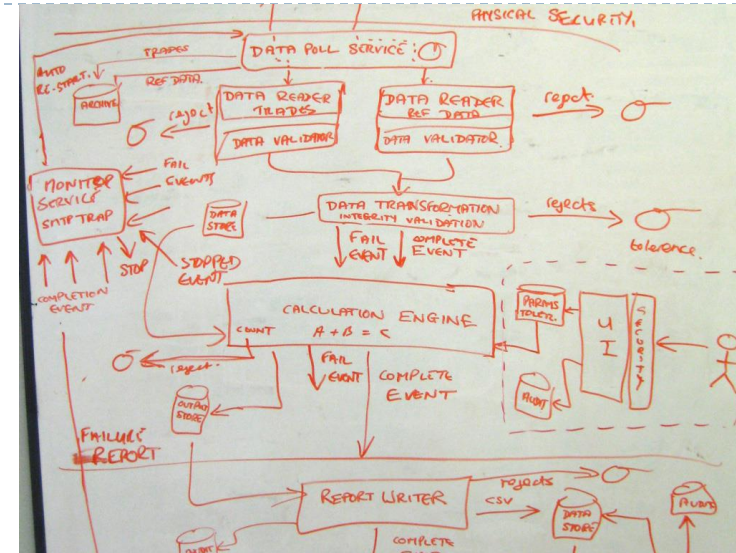 PHYSICAL SECURITY.
TRADES
DATA POLL SERVICE
AUTO
RE-START.
REF DATA.
ARCHIVE
DATA READER
TRADES
DATA VALIDATOR
reject
DATA READER
REF DATA
DATA VALIDATOR.
reject.
FAIL
EVENTS
MONITOR
SERVICE
SMTP TRAP
DATA
STORE
DATA TRANSFORMATION
INTEGRITY VALIDATION
rejects
tolerence.
FAIL
EVENT
COMPLETE
EVENT
STOP
STOPPED
EVENT
COMPLETION
EVENT
CALCULATION ENGINE
COUNT
A + B = C
PARAMS
TOLER.
UI
SECURITY
reject.
FAIL
EVENT
COMPLETE
EVENT
AUDIT
OUTPUT
STORE
FAILURE
REPORT
REPORT WRITER
rejects
CSV
DATA
STORE
AUDIT
AUDIT
COMPLETE